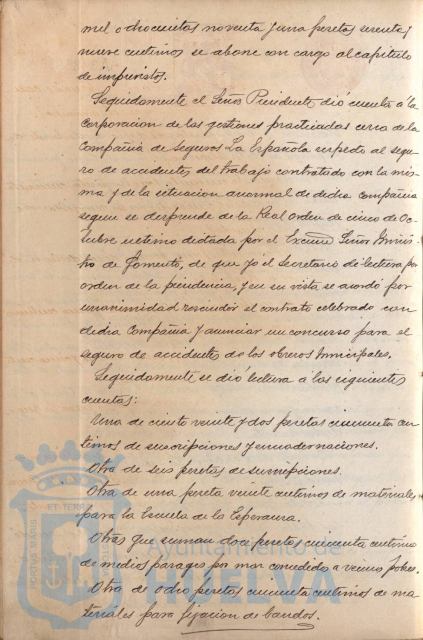 mil ochocientas noventa y una pesetas sesenta y
nueve centimos se abone con cargo al capitulo
de imprevistos.
Seguidamente el Señor Presidente dió cuenta á la
Corporacion de las gestiones practicadas cerca de la
Compañia de seguros La Española respecto al segu
ro de accidentes del trabajo contratado con la mis
ma y de la situacion anormal de dicha Compañia
segun se desprende de la Real orden de cinco de Oc
tubre ultimo dictada por el Excmo Señor Minis
tro de Fomento, de que yó el Secretario dí lectura por
orden de la presidencia, y en su vista se acordo por
unanimidad rescindir el contrato celebrado con
dicha Compañia y anunciar un concurso para el
seguro de accidentes de los obreros Municipales.
Seguidamente se dió lectura á las siguientes
cuentas:
Una de ciento veinte y dos pesetas cincuenta cen
timos de suscripciones y encuadernaciones.
Otra de seis pesetas de suscripciones.
Otra de una peseta veinte centimos de materiales
para la Escuela de la Esperanza.
Otras que suman doce pesetas cincuenta centimos
de medios pasages por mar concedido a vecinos pobres.
Otra de ocho pesetas cincuenta centimos de ma
teriales para fijacion de bandos.
Ayuntamiento de
HUELVA
PORTUS MARIS
ET TERRÆ